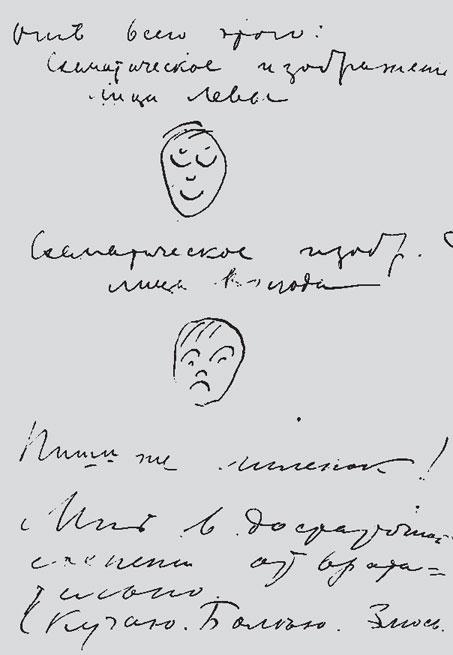 всего этого:
Схематическое изображение
лица Левы
Схематическое изобр.
лица
Пиши же миленок!
Мнѣ в достаточной
степени отврати=
тельно.
Скучаю. Злюсь.